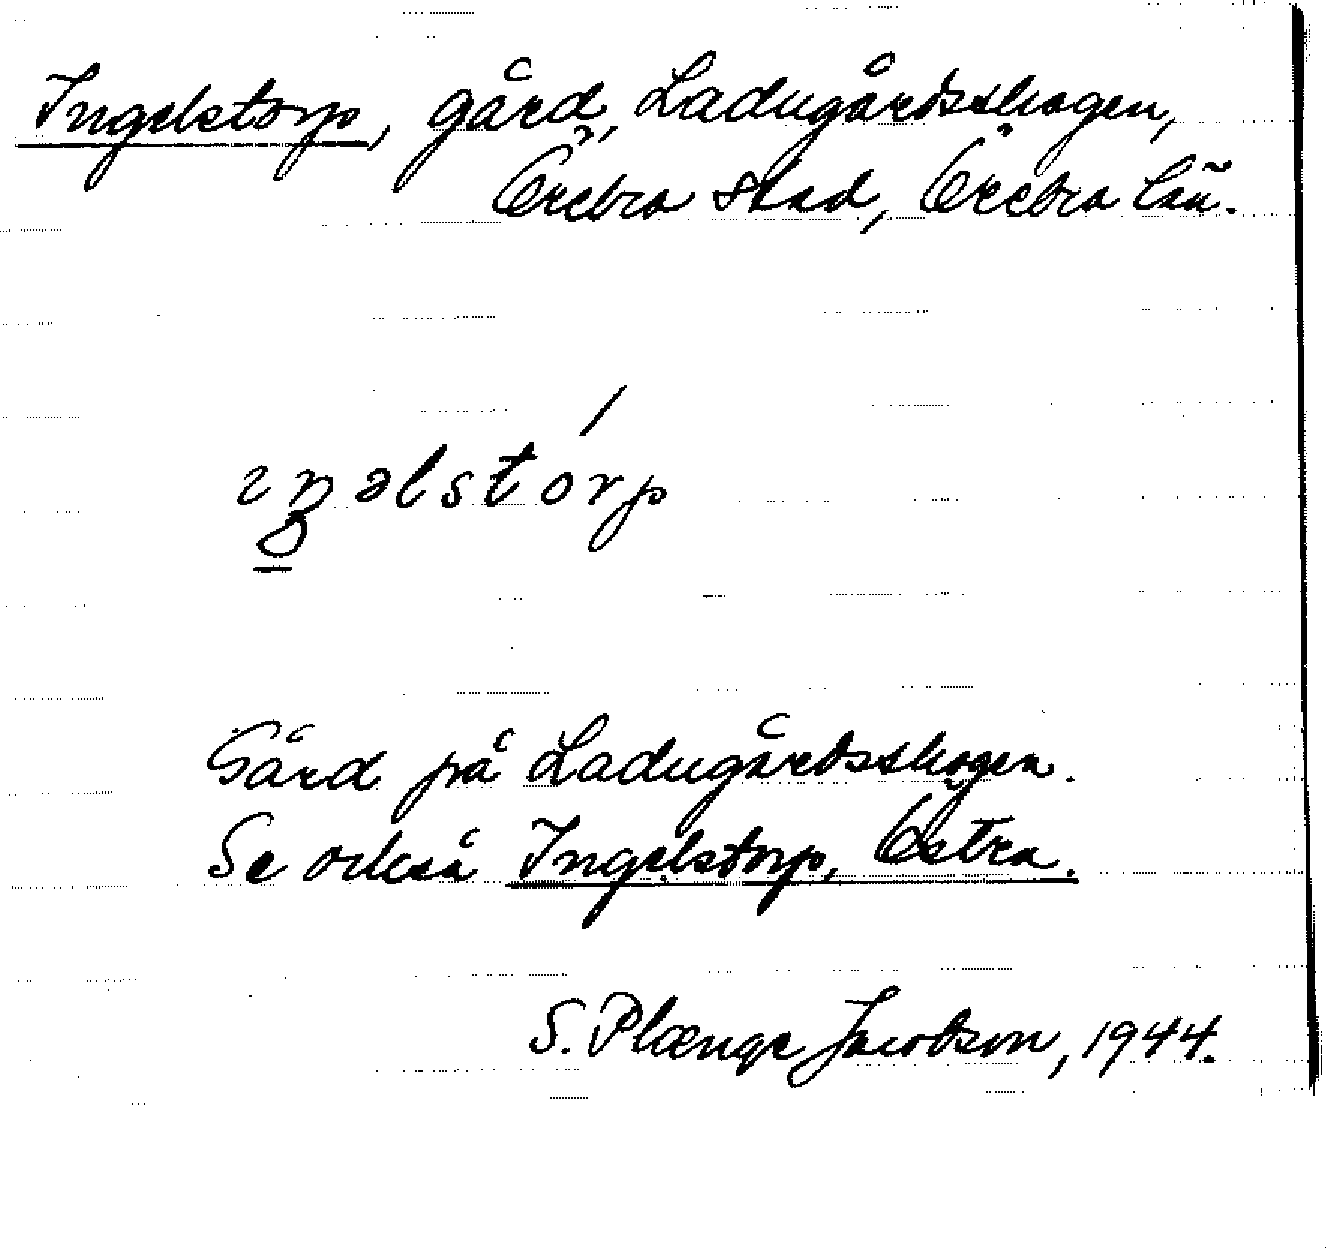 Ingelstorp, gård, Ladugårdsskogen,
Örebro stad, Örebro län.
ıŋəlstórp
Gård på Ladugårdsskogen.
Se också Ingelstorp, Östra.
S. Plænge Jacobson, 1944.